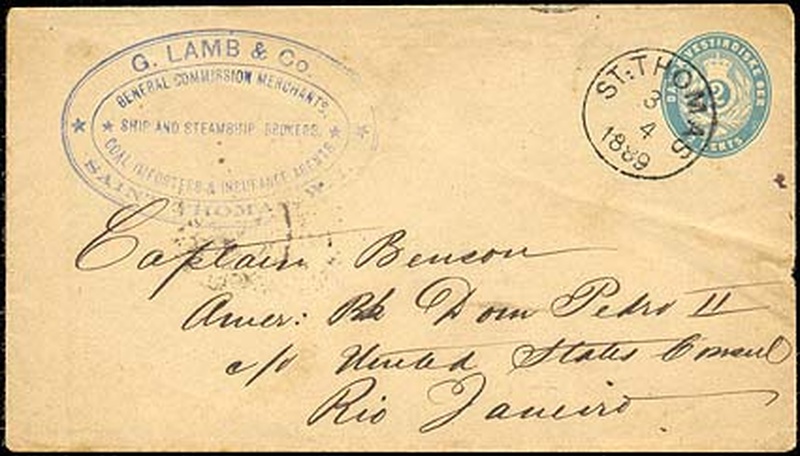 G. LAMB & Co.
GENERAL COMMISSION MERCHANTS,
★ SHIP AND STEAMSHIP BROKERS. ★
COAL IMPORTERS & INSURANCE AGENTS
★ SAINT THOMAS ★
ST: THOMAS
3
4
1889
VESTINDISKE
2
CENTS
Captain Benson
Amer: Bk Dom Pedro II
c/o United States Consul
Rio Janeiro